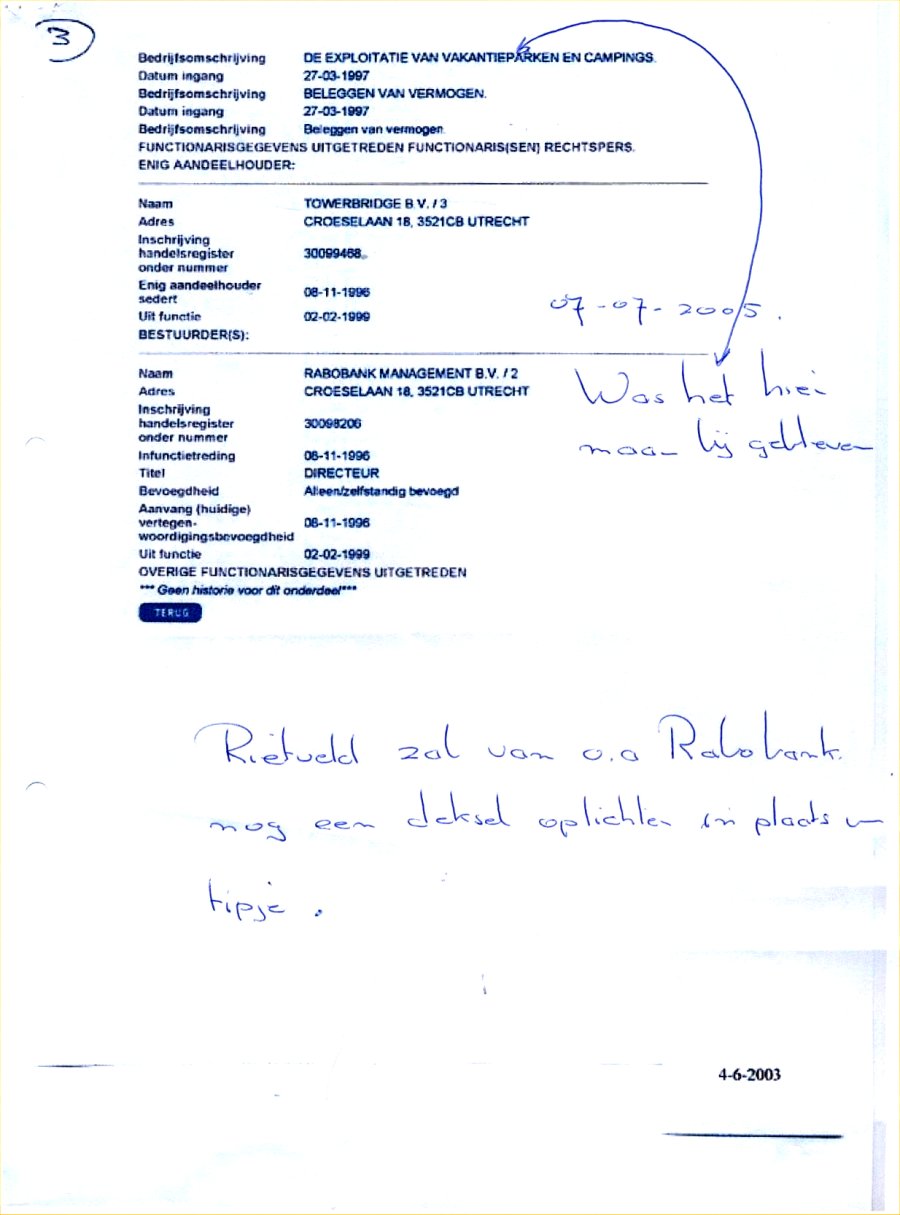 3
Bedrijfsomschrijving DE EXPLOITATIE VAN VAKANTIEPARKEN EN CAMPINGS.
Datum ingang 27-03-1997
Bedrijfsomschrijving BELEGGEN VAN VERMOGEN.
Datum ingang 27-03-1997
Bedrijfsomschrijving Beleggen van vermogen.
FUNCTIONARISGEGEVENS UITGETREDEN FUNCTIONARIS(SEN) RECHTSPERS.
ENIG AANDEELHOUDER:
Naam TOWERBRIDGE B.V. / 3
Adres CROESELAAN 18, 3521CB UTRECHT
Inschrijving
handelsregister 30099468
onder nummer
Enig aandeelhouder
sedert 08-11-1996
Uit functie 02-02-1999
07-07-2005.
BESTUURDER(S):
Naam RABOBANK MANAGEMENT B.V. / 2
Adres CROESELAAN 18, 3521CB UTRECHT
Was het hier
maar bij gebleven
Inschrijving
handelsregister 30098206
onder nummer
Infunctietreding 08-11-1996
Titel DIRECTEUR
Bevoegdheid Alleen/zelfstandig bevoegd
Aanvang (huidige)
vertegen- 08-11-1996
woordigingsbevoegdheid
Uit functie 02-02-1999
OVERIGE FUNCTIONARISGEGEVENS UITGETREDEN
*** Geen historie voor dit onderdeel***
TERUG
Rietveld zal van o.a Rabobank.
nog een deksel oplichten in plaats
tipje.
4-6-2003